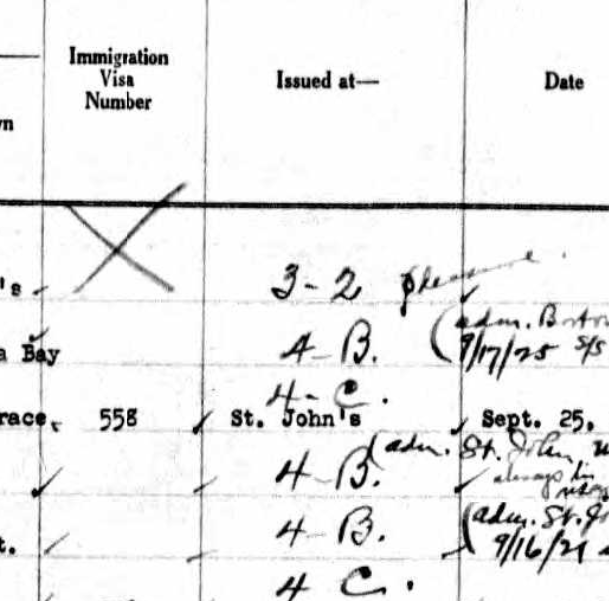 Immigration
Visa
Number
Issued at—
Date
's
3-2 pleasure
a Bay
4-B. (adm. Boston
9/17/25 S/S
4-C.
race, 558 St. John's Sept. 25,
4-B. (adm. St. John,
always in
4-B. (adm. St. Jo
t. 9/16/21
4 C.